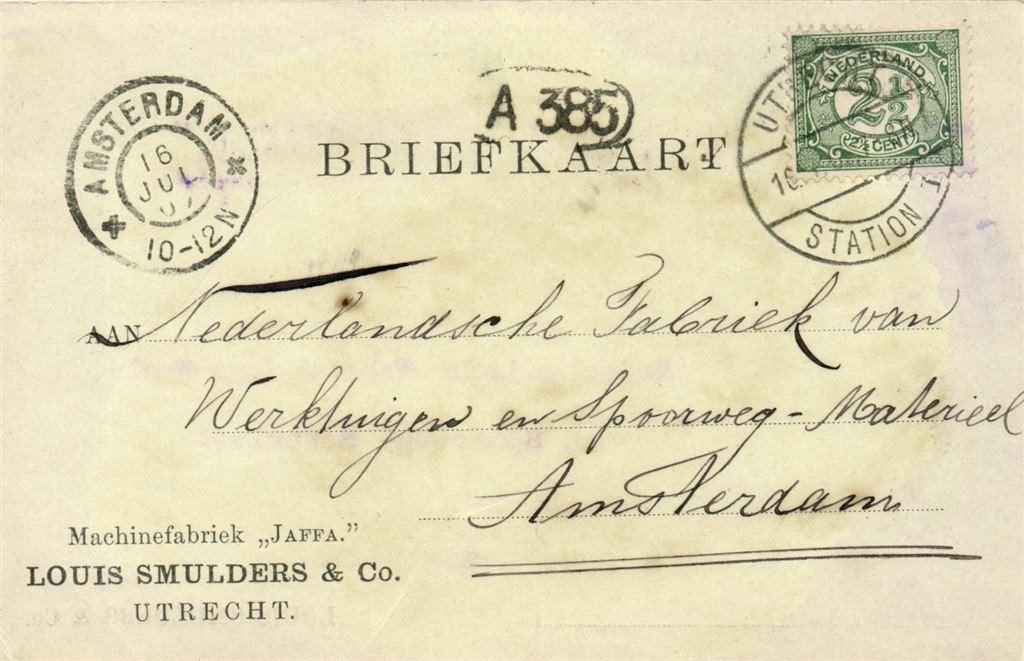 AMSTERDAM
16
JUL
10-12N
A 385
BRIEFKAART
NEDERLAND
2½
2½ CENT
STATION
AAN Nederlandsche Fabriek van
Werktuigen en Spoorweg - Materieel
Amsterdam
Machinefabriek „JAFFA.”
LOUIS SMULDERS & Co.
UTRECHT.